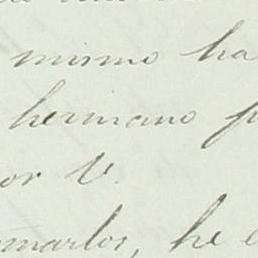 mismo ha
hermano p
or V.
marlos, he e